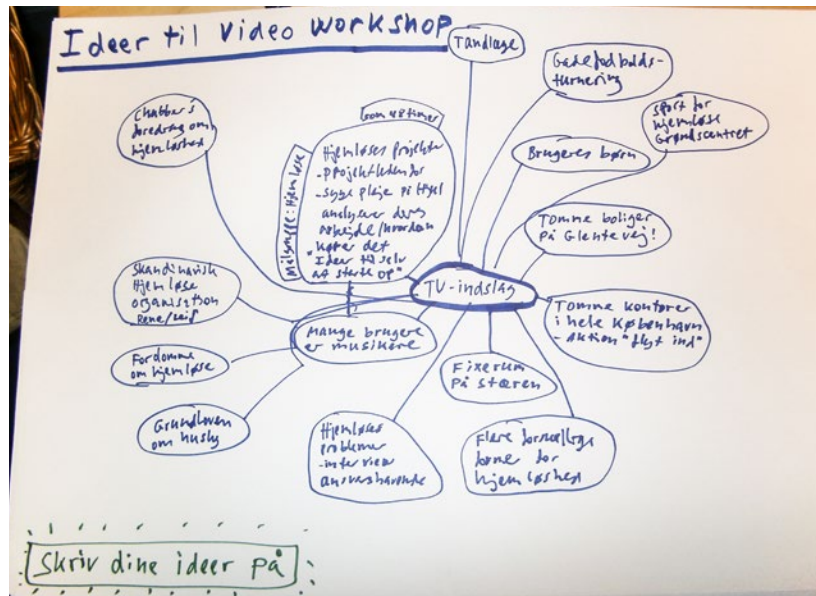 Ideer til Video workshop
Tandlæge
Gadefodbolds-
turnering
sport for
hjemløse
Grøndscentret
Brugeres børn
Tomme boliger
på Glentevej!
TV-indslag
Tomme kontorer
i hele København
- Aktion "flyt ind"
Fixerum
på stæren
Flere forskellige
former for
hjemløshed
Hjemløses
problemer
- interview
ansvarshavende
Mange brugere
er musikere
Grundloven
om husly
Fordomme
om hjemløse
Skandinavisk
Hjemløse
organisation
Rene/Leif
foredrag om
hjemløshed
som 48 timer
Målgruppe: Hjemløse
Hjemløses projekter
- projekt
- syge pleje på
analyser deres
arbejde/hvordan
"kører det
Ideer til selv
at starte op"
Skriv dine ideer på